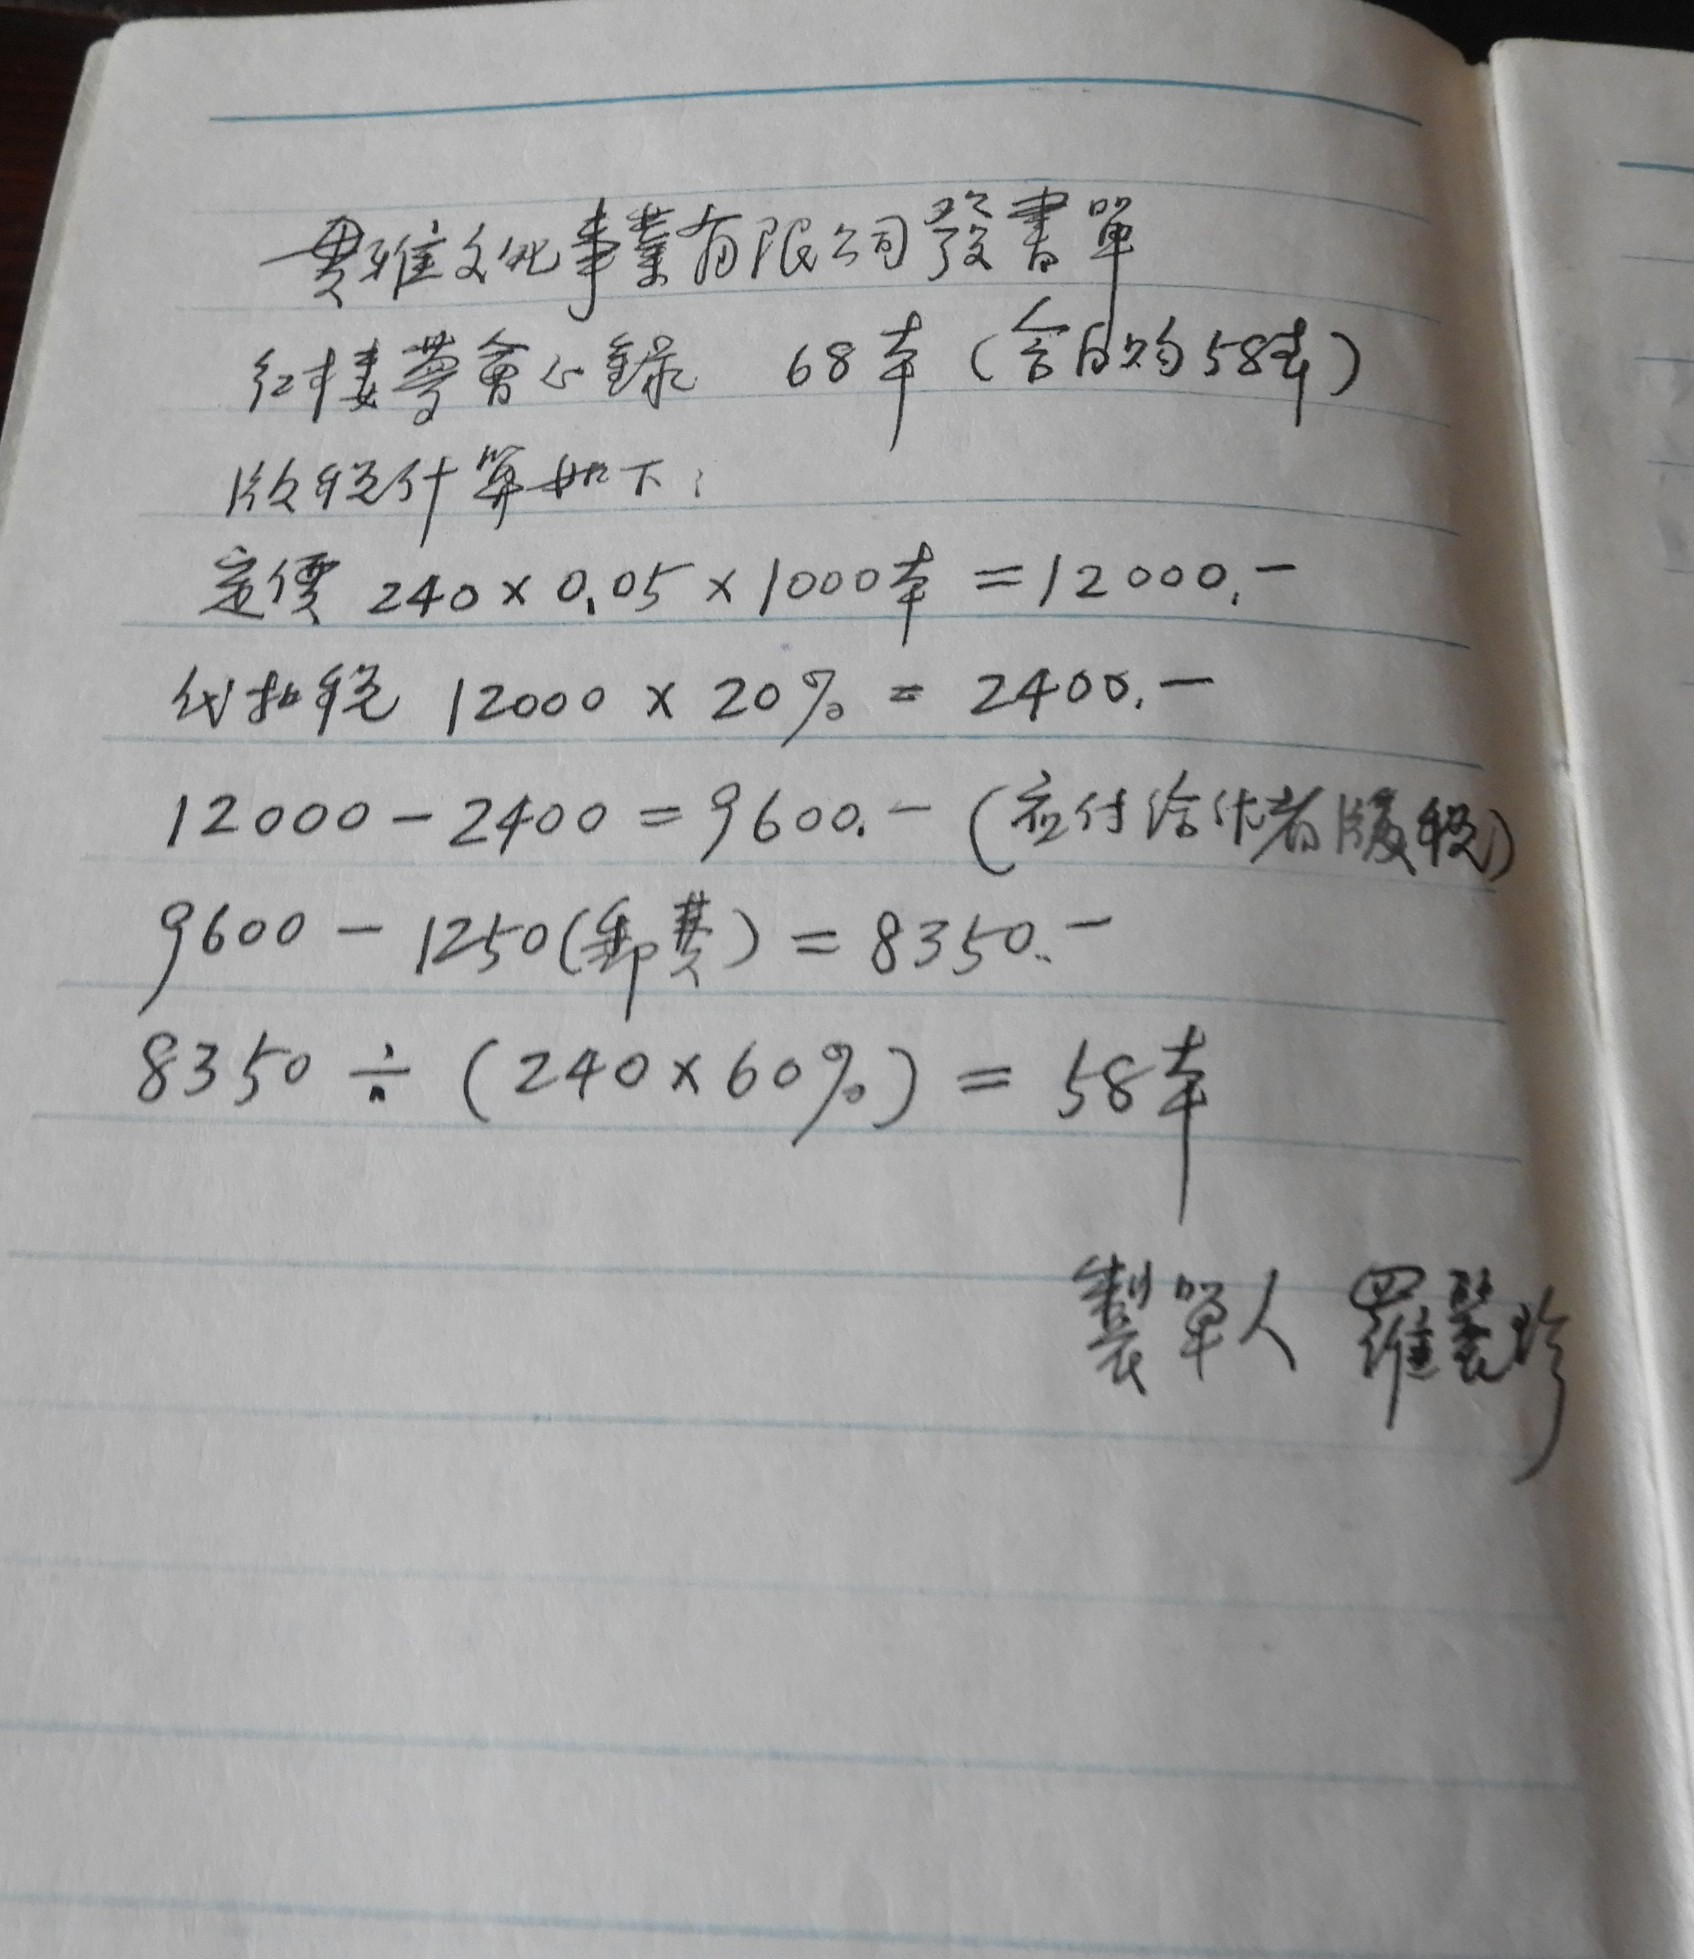 貫雅文化事業有限公司發書單
紅樓夢會心錄 68本 (含自购58本)
版稅计算如下:
定價 240 × 0.05 × 1000本 = 12000.-
代扣稅 12000 × 20% = 2400.-
12000 - 2400 = 9600.- (应付给作者版稅)
9600 - 1250(郵費) = 8350.-
8350 ÷ (240×60%) = 58本
製單人 羅麗珍